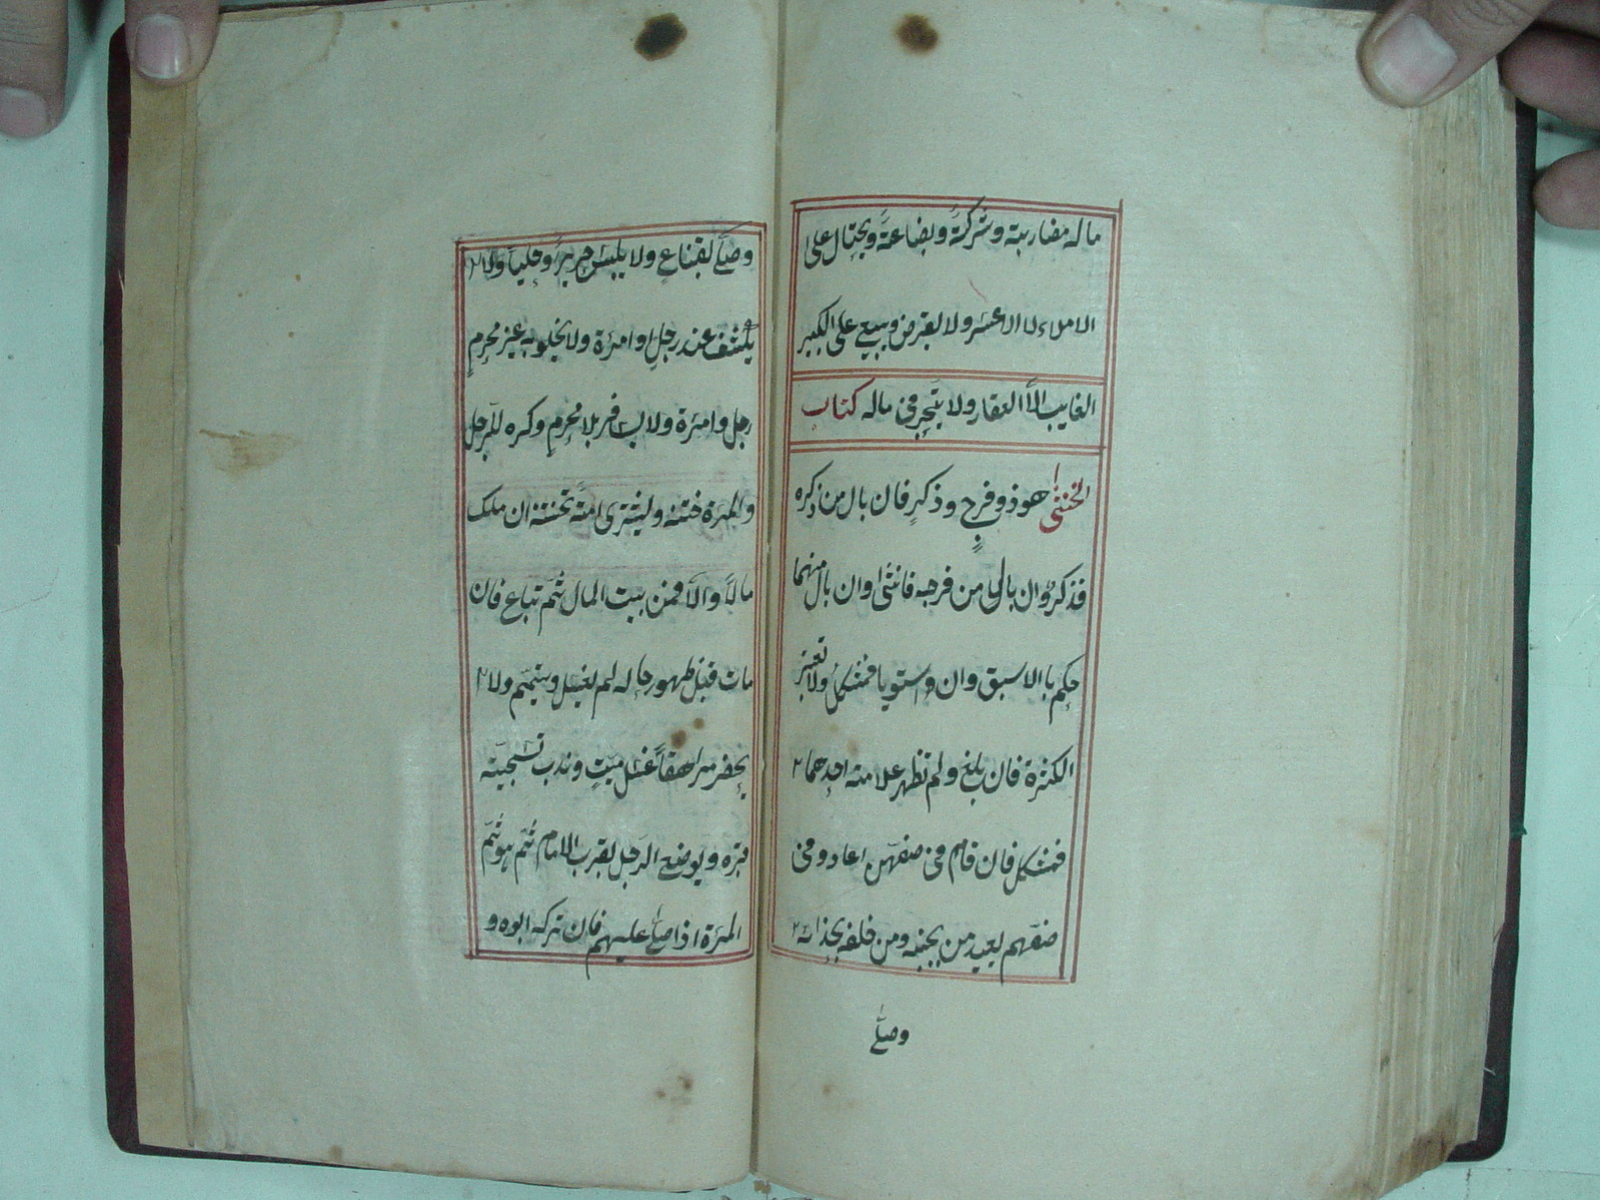 ماله مضاربته وشركةً وبضاعةً ويحتال على
الاملاء لا الاعسر ولا يقرض ويبيع على الكبير
الغايب الاَّ العقار ولا يتجر فى ماله كتاب
الخنثى هو ذو فرج وذكرٍ فان بال من ذكره
فذكرٌ وان بال من فرجه فانثى وان بال منهما
حكم باالاسبق وان واستويا فمشكل ولا تعتبر
الكثرة فان بلغ ولم تظهر علامته احدهما ٢
فمشكل فان قام فى صفهن اعاد وفى
صفهم يعيد من بجنبه ومن خلفه بحذائه ٢
وصلّى
وصلّى بقناعٍ ولا يلبس حريراً وحلياً ولا ٢
يكشف عند رجلٍ وامرءة ولا يخلو به غير محرمٍ
رجل وامرءة ولا يسافر بلا محرمٍ وكره للرّجل
والمرءة ختنه وليشترى امةً تختنه ان ملك
مالاً والاَّ فمن بيت المال ثمّ تباع فان
مات قبل ظهور حاله لم يغسل ويتيمّم ولا ٢
يحضر مراهقاً غسل ميتٍ وندب تسجيته
قبره ويوضع الرجل بقرب الامام ثمّ هو ثمّ
المرءة اذا صلّى عليهم فان تركه ابوه و